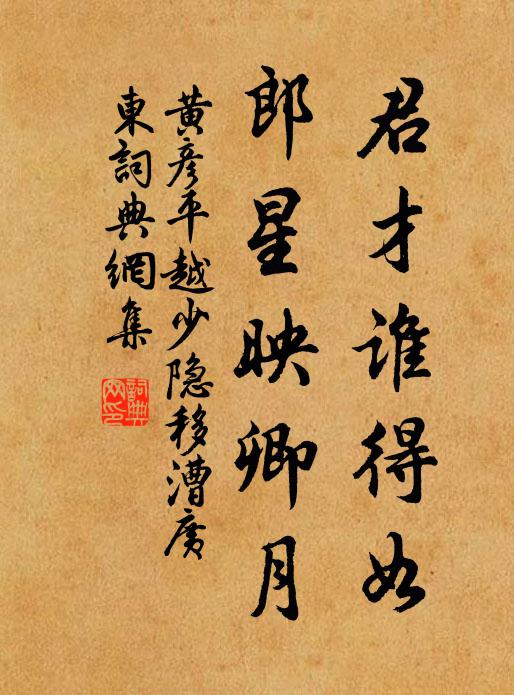 君才谁得如
郎星映卿月
黄彦平越少隐移漕广
東詞典網集
詞典
网印